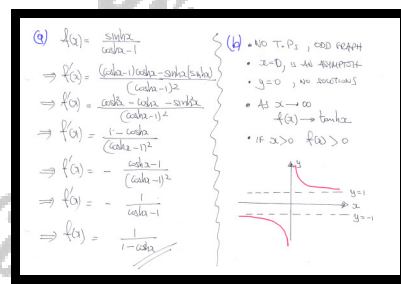 (a) f(x) = sinhx / coshx-1
⇒ f'(x) = (coshx-1)coshx - sinhx(sinhx) / (coshx-1)²
⇒ f'(x) = cosh²x - coshx - sinh²x / (coshx-1)²
⇒ f'(x) = 1 - coshx / (coshx-1)²
⇒ f'(x) = - coshx-1 / (coshx-1)²
⇒ f'(x) = - 1 / coshx-1
⇒ f'(x) = 1 / 1-coshx
(b) • NO T.P.s, ODD GRAPH
• x=0, IS AN ASYMPTOTE
• y=0, NO SOLUTIONS
• AS x → ∞
f(x) → tanhx
• IF x>0 f(x) > 0
y
y=1
x
y=-1